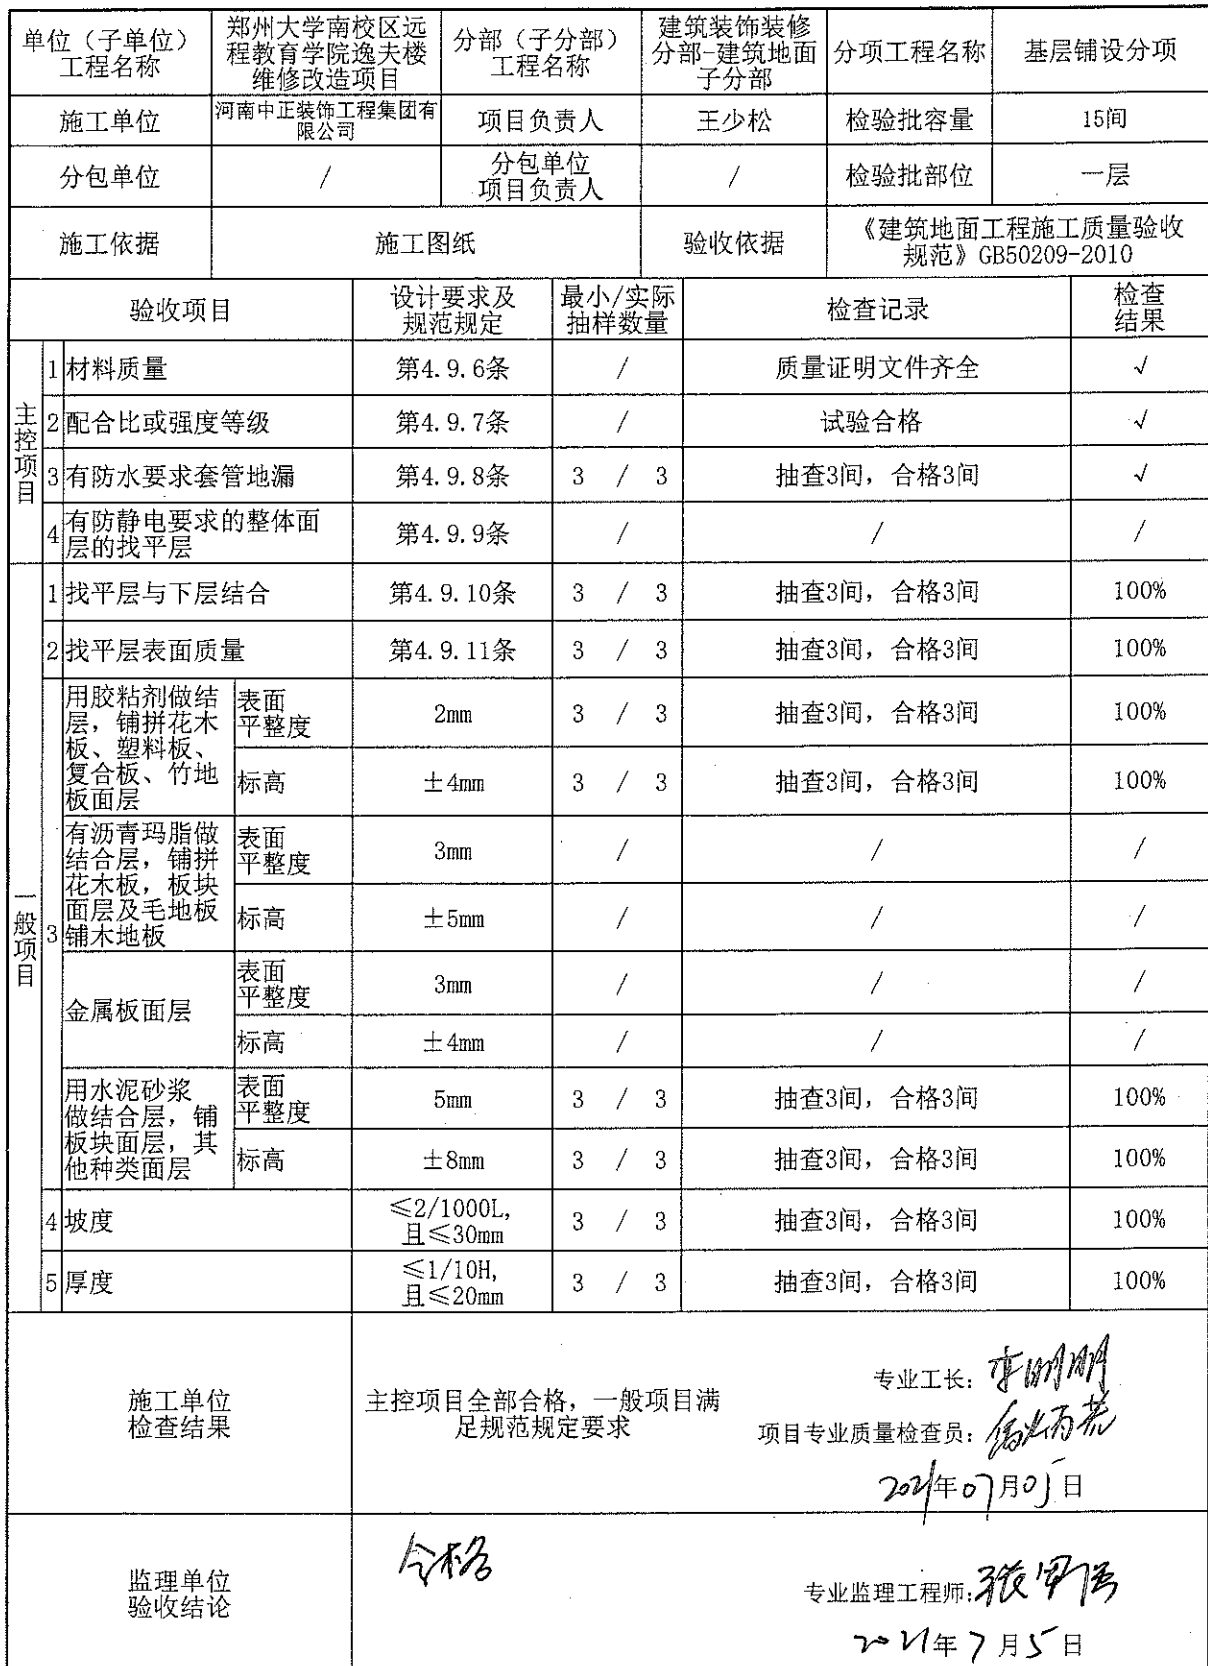 单位（子单位）
工程名称
郑州大学南校区远
程教育学院逸夫楼
维修改造项目
分部（子分部）
工程名称
建筑装饰装修
分部-建筑地面
子分部
分项工程名称
基层铺设分项
施工单位
河南中正装饰工程集团有
限公司
项目负责人
王少松
检验批容量
15间
分包单位
/
分包单位
项目负责人
/
检验批部位
一层
施工依据
施工图纸
验收依据
《建筑地面工程施工质量验收
规范》GB50209-2010
验收项目
设计要求及
规范规定
最小/实际
抽样数量
检查记录
检查
结果
主控项目
1 材料质量 第4.9.6条 / 质量证明文件齐全 √
2 配合比或强度等级 第4.9.7条 / 试验合格 √
3 有防水要求套管地漏 第4.9.8条 3 / 3 抽查3间，合格3间 √
4 有防静电要求的整体面
层的找平层
第4.9.9条 / / /
一般项目
1 找平层与下层结合 第4.9.10条 3 / 3 抽查3间，合格3间 100%
2 找平层表面质量 第4.9.11条 3 / 3 抽查3间，合格3间 100%
3
用胶粘剂做结
层，铺拼花木
板、塑料板、
复合板、竹地
板面层
表面
平整度
2mm 3 / 3 抽查3间，合格3间 100%
标高 ±4mm 3 / 3 抽查3间，合格3间 100%
有沥青玛脂做
结合层，铺拼
花木板，板块
面层及毛地板
铺木地板
表面
平整度
3mm / / /
标高 ±5mm / / /
金属板面层
表面
平整度
3mm / / /
标高 ±4mm / / /
用水泥砂浆
做结合层，铺
板块面层，其
他种类面层
表面
平整度
5mm 3 / 3 抽查3间，合格3间 100%
标高 ±8mm 3 / 3 抽查3间，合格3间 100%
4 坡度
≤2/1000L，
且≤30mm
3 / 3 抽查3间，合格3间 100%
5 厚度
≤1/10H，
且≤20mm
3 / 3 抽查3间，合格3间 100%
施工单位
检查结果
主控项目全部合格，一般项目满
足规范规定要求
专业工长：李明朋
项目专业质量检查员：
2021年07月05日
监理单位
验收结论
合格
专业监理工程师：张军强
2021年7月5日